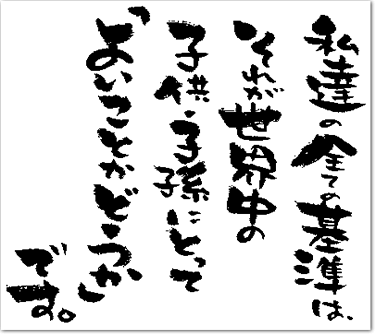 私達の全ての基準は、
それが世界中の
子供・子孫にとって
「よいことかどうか」
です。